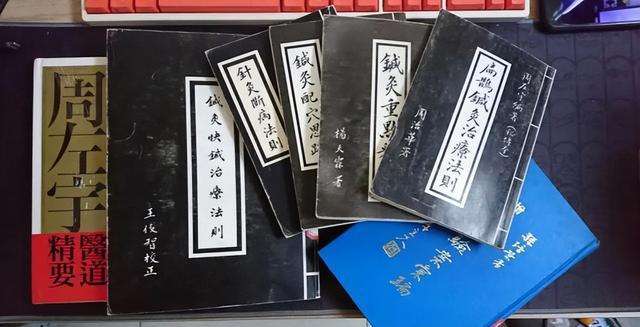 周左宇
醫道
精要
鍼灸快鍼治療法則
王俊智校正
針灸断病法則
鍼灸配穴
鍼灸重點
楊天霖著
扁鵲鍼灸治療法則
周左宇編著
周治華署
驗案實編